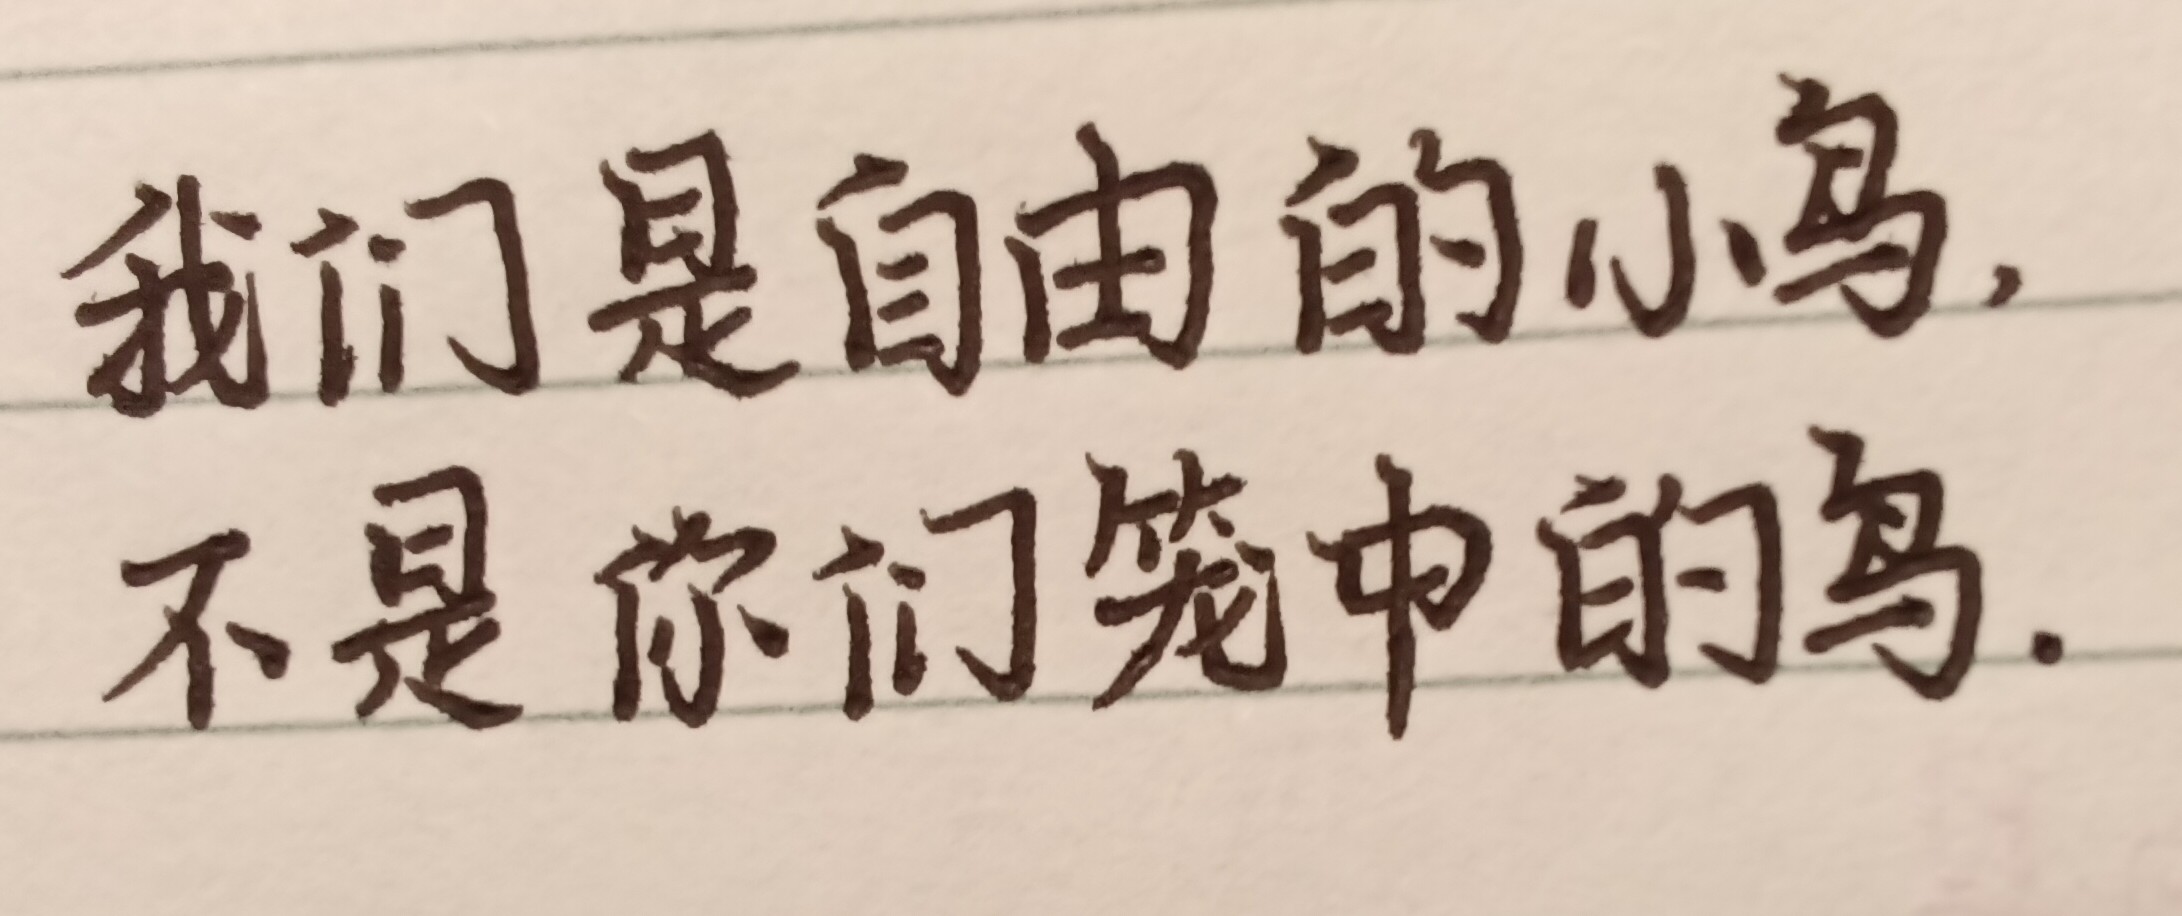 我们是自由的小鸟,
不是你们笼中的鸟.